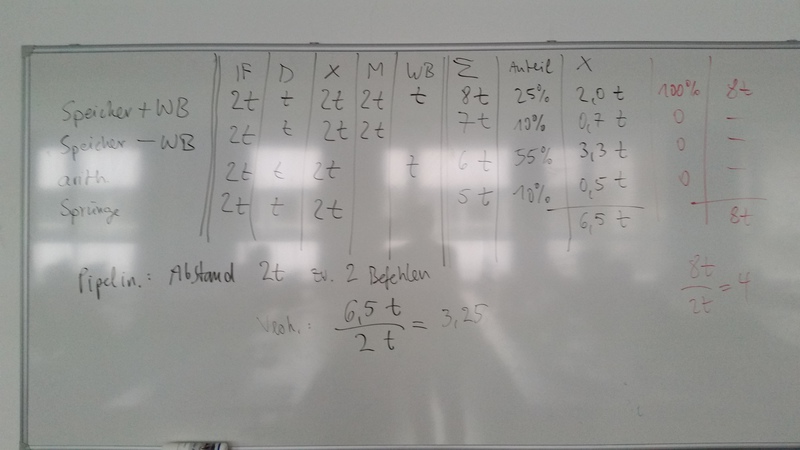 IF D X M WB Σ Anteil X
Speicher + WB 2t t 2t 2t t 8t 25% 2,0 t 100% 8t
Speicher - WB 2t t 2t 2t 7t 10% 0,7 t 0 -
arith 2t t 2t t 6t 55% 3,3 t 0 -
Sprünge 2t t 2t 5t 10% 0,5 t 0 -
6,5 t 8t
Pipelin.: Abstand 2t zw. 2 Befehlen
8t / 2t = 4
6,5 t / 2 t = 3,25